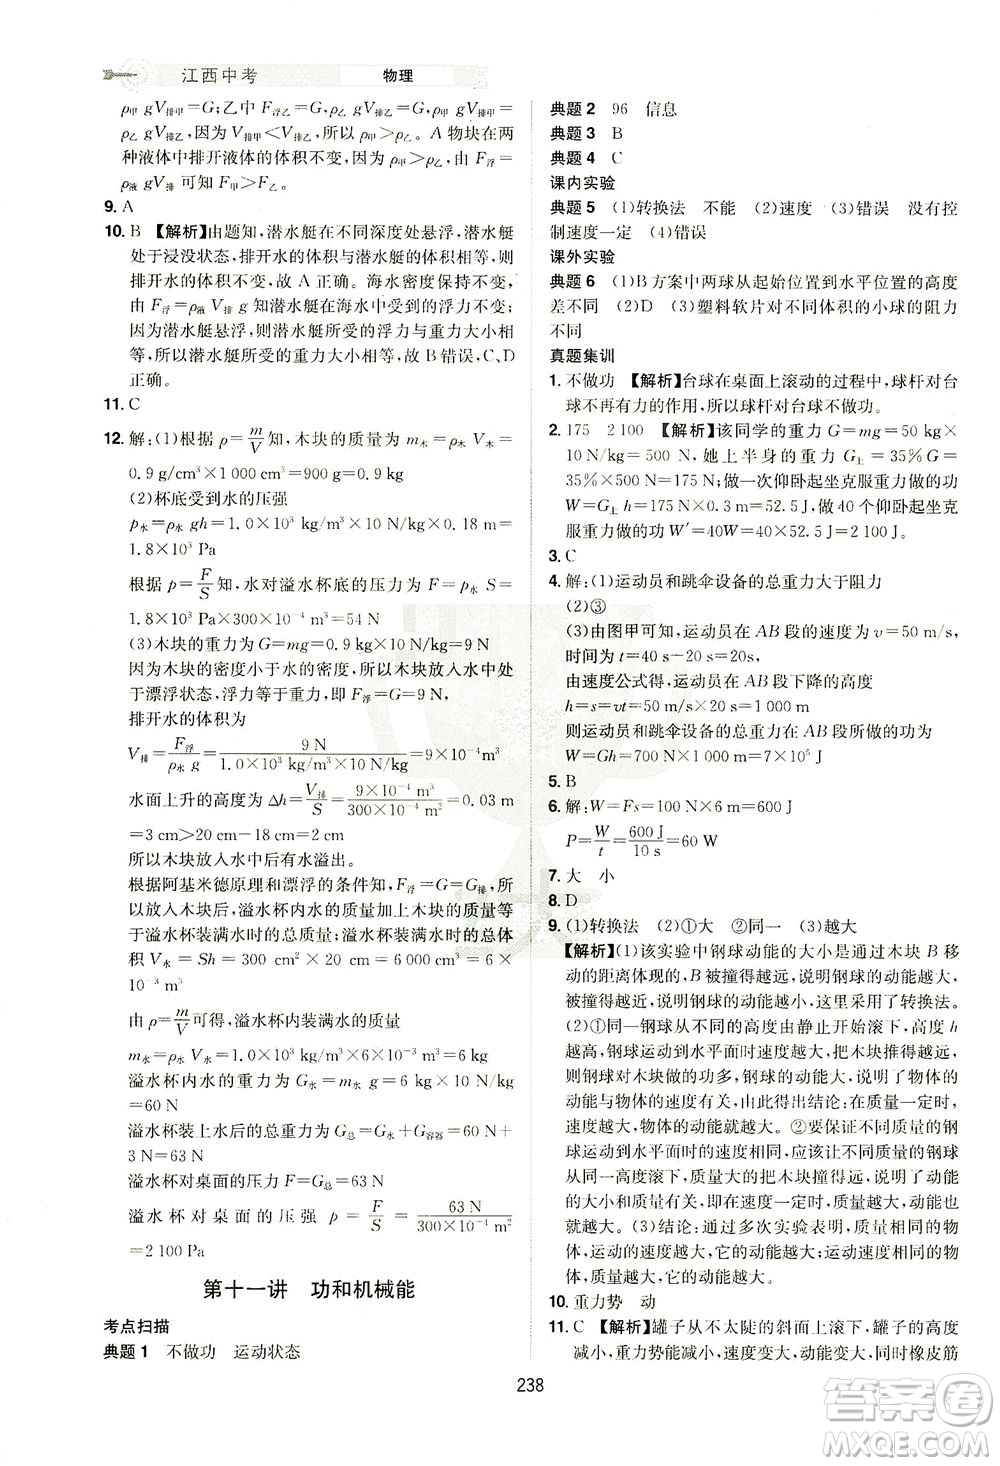 江西中考 物理
ρ甲 gV排甲＝G；乙中 F浮乙＝G排乙，ρ乙 gV排乙＝G，ρ甲
gV排甲＝ρ乙 gV排乙，因为 V排甲＜V排乙，所以 ρ甲＞ρ乙。A 物块在两
种液体中排开液体的体积不变，由 F浮＝
ρ液 gV排 可知 F甲＞F乙。
9. A
10. B 【解析】由题知，潜水艇在不同深度处悬浮，潜水艇
处于浸没状态，排开水的体积等于自身的体积，则
排开水的体积不变，故 A 正确。海水密度保持不变，
由 F浮＝ρ液 V排 g 知潜水艇在海水中所受浮力不变；
因为潜水艇悬浮，则潜水艇所受的浮力与重力大小相
等，所以潜水艇所受的重力大小相等，故 B 错误，C、D
正确。
11. C
12. 解：(1)根据 ρ＝m/V 知，木块的质量为 m木＝ρ木 V木＝
0.9 g/cm³×1 000 cm³＝900 g＝0.9 kg
(2)杯底受到水的压强
p水＝ρ水 gh＝1.0×10³ kg/m³×10 N/kg×0.18 m＝
1.8×10³ Pa
根据 p＝F/S 知，水对溢水杯底的压力 F＝p水 S＝
1.8×10³ Pa×300×10⁻⁴ m³＝54 N
(3)木块的重力为 G＝mg＝0.9 kg×10 N/kg＝9 N
因为木块的密度小于水的密度，所以木块放入水中处
于漂浮状态，浮力等于重力，即 F浮＝G＝9 N
排开水的体积为
V排＝F浮/ρ水 g＝9 N/1.0×10³ kg/m³×10 N/kg＝9×10⁻⁴m³
水面上升的高度为 Δh＝V排/S＝9×10⁻⁴ m³/300×10⁻⁴ m²＝0.03 m
＝3 cm＞20 cm－18 cm＝2 cm
所以木块放入水中后有水溢出。
根据阿基米德原理和漂浮的条件知，F浮＝G＝G排，所
以木块放入后，溢水杯内水的质量与木块的质量等于
溢水杯装满水时的总质量，此时溢水杯和水的总体
积 V水＝Sh＝300 cm²×20 cm＝6 000 cm³＝6×
10⁻³ m³
由 ρ＝m/V可得，溢水杯内装满水的质量
m水＝ρ水 V水＝1.0×10³ kg/m³×6×10⁻³ m³＝6 kg
溢水杯内水的重力为 G水＝m水 g＝6 kg×10 N/kg
＝60 N
溢水杯装上水后的总重力为 G总＝G水＋G容器＝60 N
＋3 N＝63 N
溢水杯对桌面的压力 F＝G总＝63 N
溢水杯对桌面的压强 p＝F/S＝63 N/300×10⁻⁴ m²
＝2 100 Pa
第十一讲 功和机械能
考点扫描
典题 1 不做功 运动状态
典题 2 96 信息
典题 3 B
典题 4 C
课内实验
典题 5 (1)转换法 不能 (2)速度 (3)错误 没有控
制速度一定 (4)错误
课外实验
典题 6 (1)B 方案中两球从起始位置到水平位置的高度
差不同 (2)D (3)塑料软片对不同体积的小球的阻力
不同
真题集训
1. 不做功 【解析】台球在桌面上滚动的过程中，球杆对台
球不再有力的作用，所以球杆对台球不做功。
2. 175 2 100 【解析】该同学的重力 G＝mg＝50 kg
×10 N/kg＝500 N，她上半身的重力 G上＝35％G＝
35％×500 N＝175 N；做一次仰卧起坐克服重力做的功
W＝G上 h＝175 N×0.3 m＝52.5 J，做 40 个仰卧起坐克
服重力做的功 W′＝40W＝40×52.5 J＝2 100 J。
3. C
4. 解：(1)运动员和跳伞设备的总重力大于阻力
(2)③
(3)由图甲可知，运动员在 AB 段的速度为 v＝50 m/s，
时间为 t＝40 s－20 s＝20s，
由速度公式得，运动员在 AB 段下降的高度
h＝s＝vt＝50 m/s×20 s＝1 000 m
则运动员和跳伞设备的总重力在 AB 段所做的功为
W＝Gh＝700 N×1 000 m＝7×10⁵ J
5. B
6. 解：W＝Fs＝100 N×6 m＝600 J
P＝W/t＝600 J/10 s＝60 W
7. 大 小
8. D
9. (1)转换法 (2)①大 ②同一 (3)越大
【解析】(1)该实验中钢球动能的大小是通过木块 B 移
动的距离体现的，B 被撞得越远，说明钢球的动能越大，
被撞得越近，说明钢球的动能越小，这里采用了转换法。
(2)①同一钢球从不同的高度由静止开始滚下，高度 h
越高，钢球运动到水平面时速度越大，木块推得越远，
对木块做的功多，钢球的动能越大，说明了物体的
动能与物体的速度有关，由此得出结论：质量一定时，
速度越大，物体的动能就越大。②要保证不同质量的钢
球运动到水平面时的速度相同，应该让不同质量的钢
球从同一高度滚下，质量大的把木块撞得远，说明了动
能的大小和质量有关，即在速度一定时，质量越大，动
能越大。(3)结论：通过多次实验表明，质量相同的物
体，运动的速度越大，它的动能越大；运动速度相同的物
体，质量越大，它的动能越大。
10. 重力势 动
11. C 【解析】罐子从不太陡的斜面上滚下，罐子的高度
减小，重力势能减小，速度变大，动能变大，同时橡皮筋
238
答案圈
MXQE.COM